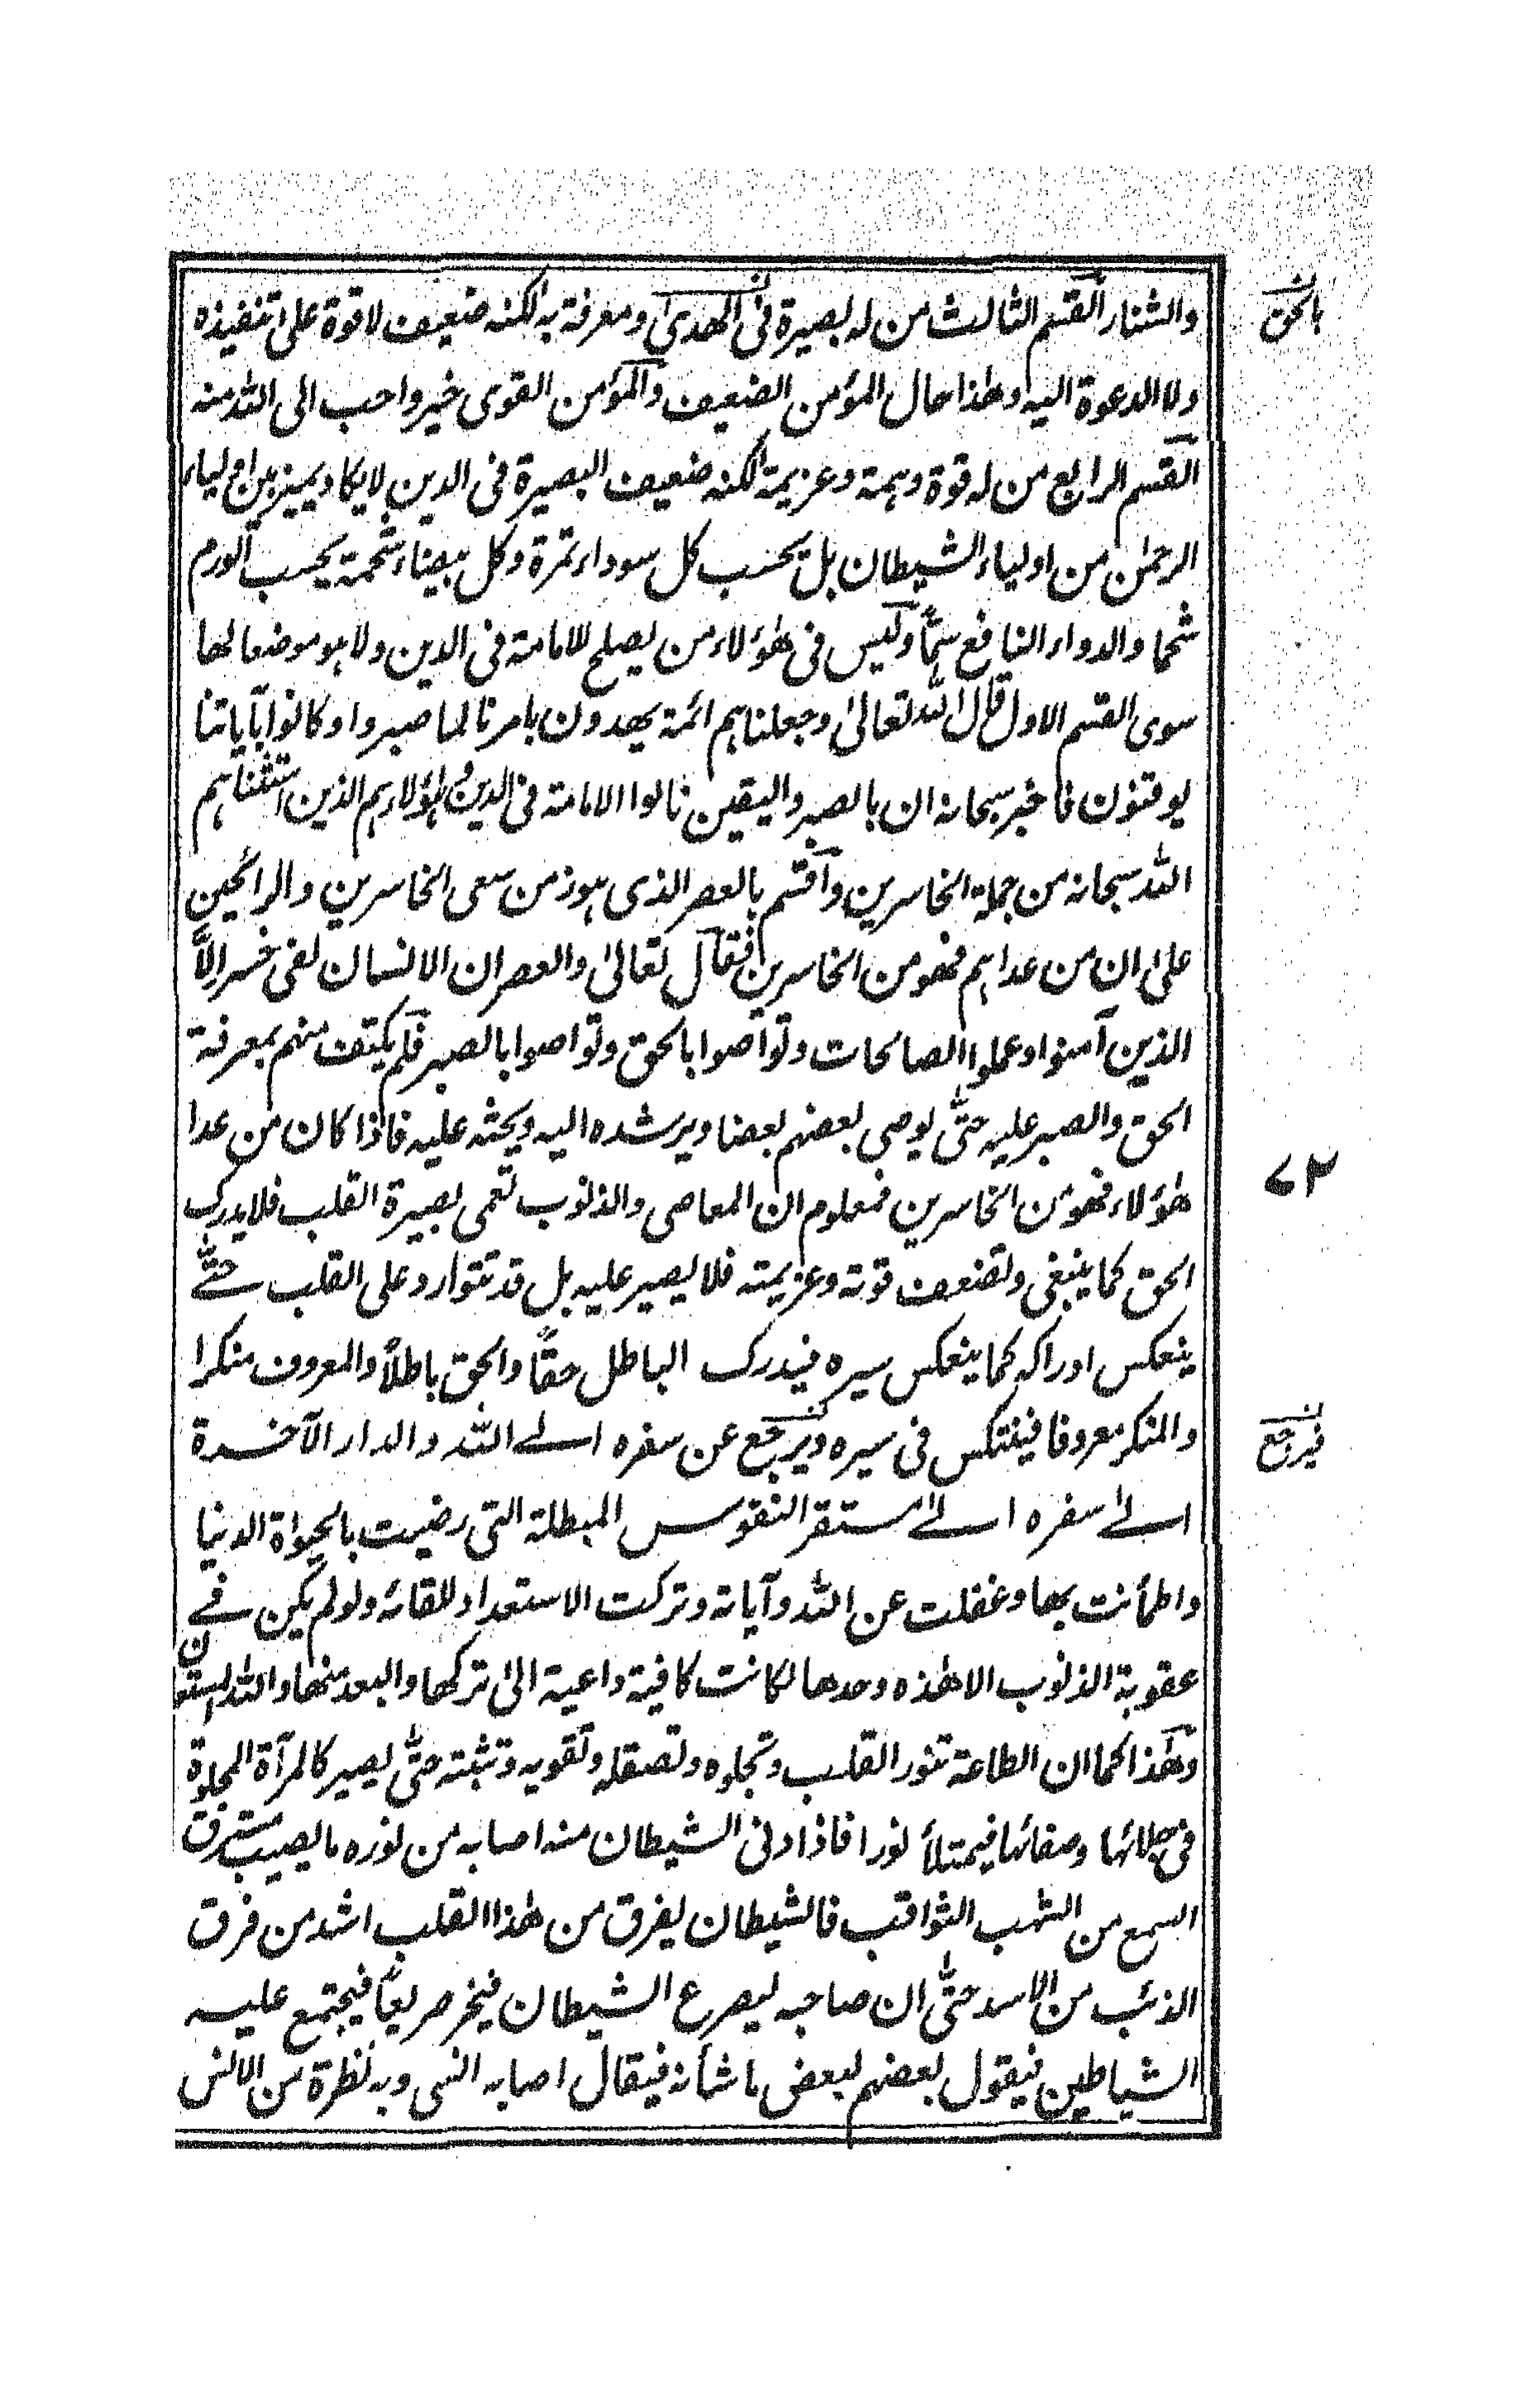 والشنار القسم الثالث من له بصيرة في الهدى ومعرفة به لكنه ضعيف لا قوة على تنفيذه
ولا الدعوة اليه وهذا حال المؤمن الضعيف والمؤمن القوى خير واحب الى الله منه
القسم الرابع من له قوة وهمة وعزيمة لكنه ضعيف البصيرة فى الدين لا يكاد يميز بين اولياء
الرحمٰن من اولياء الشيطان بل يحسب كل سوداء تمرة وكل بيضاء شحمة يحسب الورم
شحما والدواء النافع سمًّا وليس فى هٰؤلاء من يصلح للامامة فى الدين ولا هو موضعا لها
سوى القسم الاول قال الله تعالىٰ وجعلناهم ائمة يهدون بامرنا لما صبروا وكانوا بآياتنا
يوقنون فاخبر سبحانه ان بالصبر واليقين نالوا الامامة فى الدين وهٰؤلاء هم الذين استثناهم
الله سبحانه من جملة الخاسرين واقسم بالعصر الذى هو زمن سعى الخاسرين والرابحين
علىٰ ان من عداهم فهو من الخاسرين فقال تعالىٰ والعصر ان الانسان لفى خسر الّا
الذين آمنوا وعملوا الصالحات وتواصوا بالحق وتواصوا بالصبر فلم يكتف منهم بمعرفة
الحق والصبر عليه حتّٰى يوصى بعضهم بعضا ويرشده اليه ويحثه عليه فاذا كان من عدا
هٰؤلاء فهو من الخاسرين فمعلوم ان المعاصى والذنوب تعمى بصيرة القلب فلا يدرك
الحق كما ينبغى وتضعف قوته وعزيمته فلا يصبر عليه بل قد تتوارد على القلب حتّٰے
ينعكس ادراكه كما ينعكس سيره فيدرك الباطل حقًّا والحق باطلًا والمعروف منكرا
والمنكر معروفا فينتكس فى سيره ويرجع عن سفره الے الله والدار الآخرة
الےٰ سفره الےٰ مستقر النفوس المبطلة التى رضيت بالحيوٰة الدنيا
واطمأنت بها وغفلت عن الله وآياته وتركت الاستعداد للقائه ولو لم يكن فے
عقوبة الذنوب الا هٰذه وحدها لكانت كافية داعية الىٰ تركها والبعد منها والله المستعان
وهٰذا كما ان الطاعة تنور القلب وتجلوه وتصقله وتقويه وتثبته حتّٰى يصير كالمرآة المجلوة
فى جلائها وصفائها فيمتلأ نورا فاذا دنى الشيطان منه اصابه من نوره ما يصيب مسترق
السمع من الشهب الثواقب فالشيطان يفرق من هٰذا القلب اشد من فرق
الذئب من الاسد حتّٰى ان صاحبه ليصرع الشيطان فيخر صريعًا فيجتمع عليه
الشياطين فيقول بعضهم لبعض ما شأنه فيقال اصابه انسى وبه نظرة من الانس
بالحق
٧٢
فيرجع